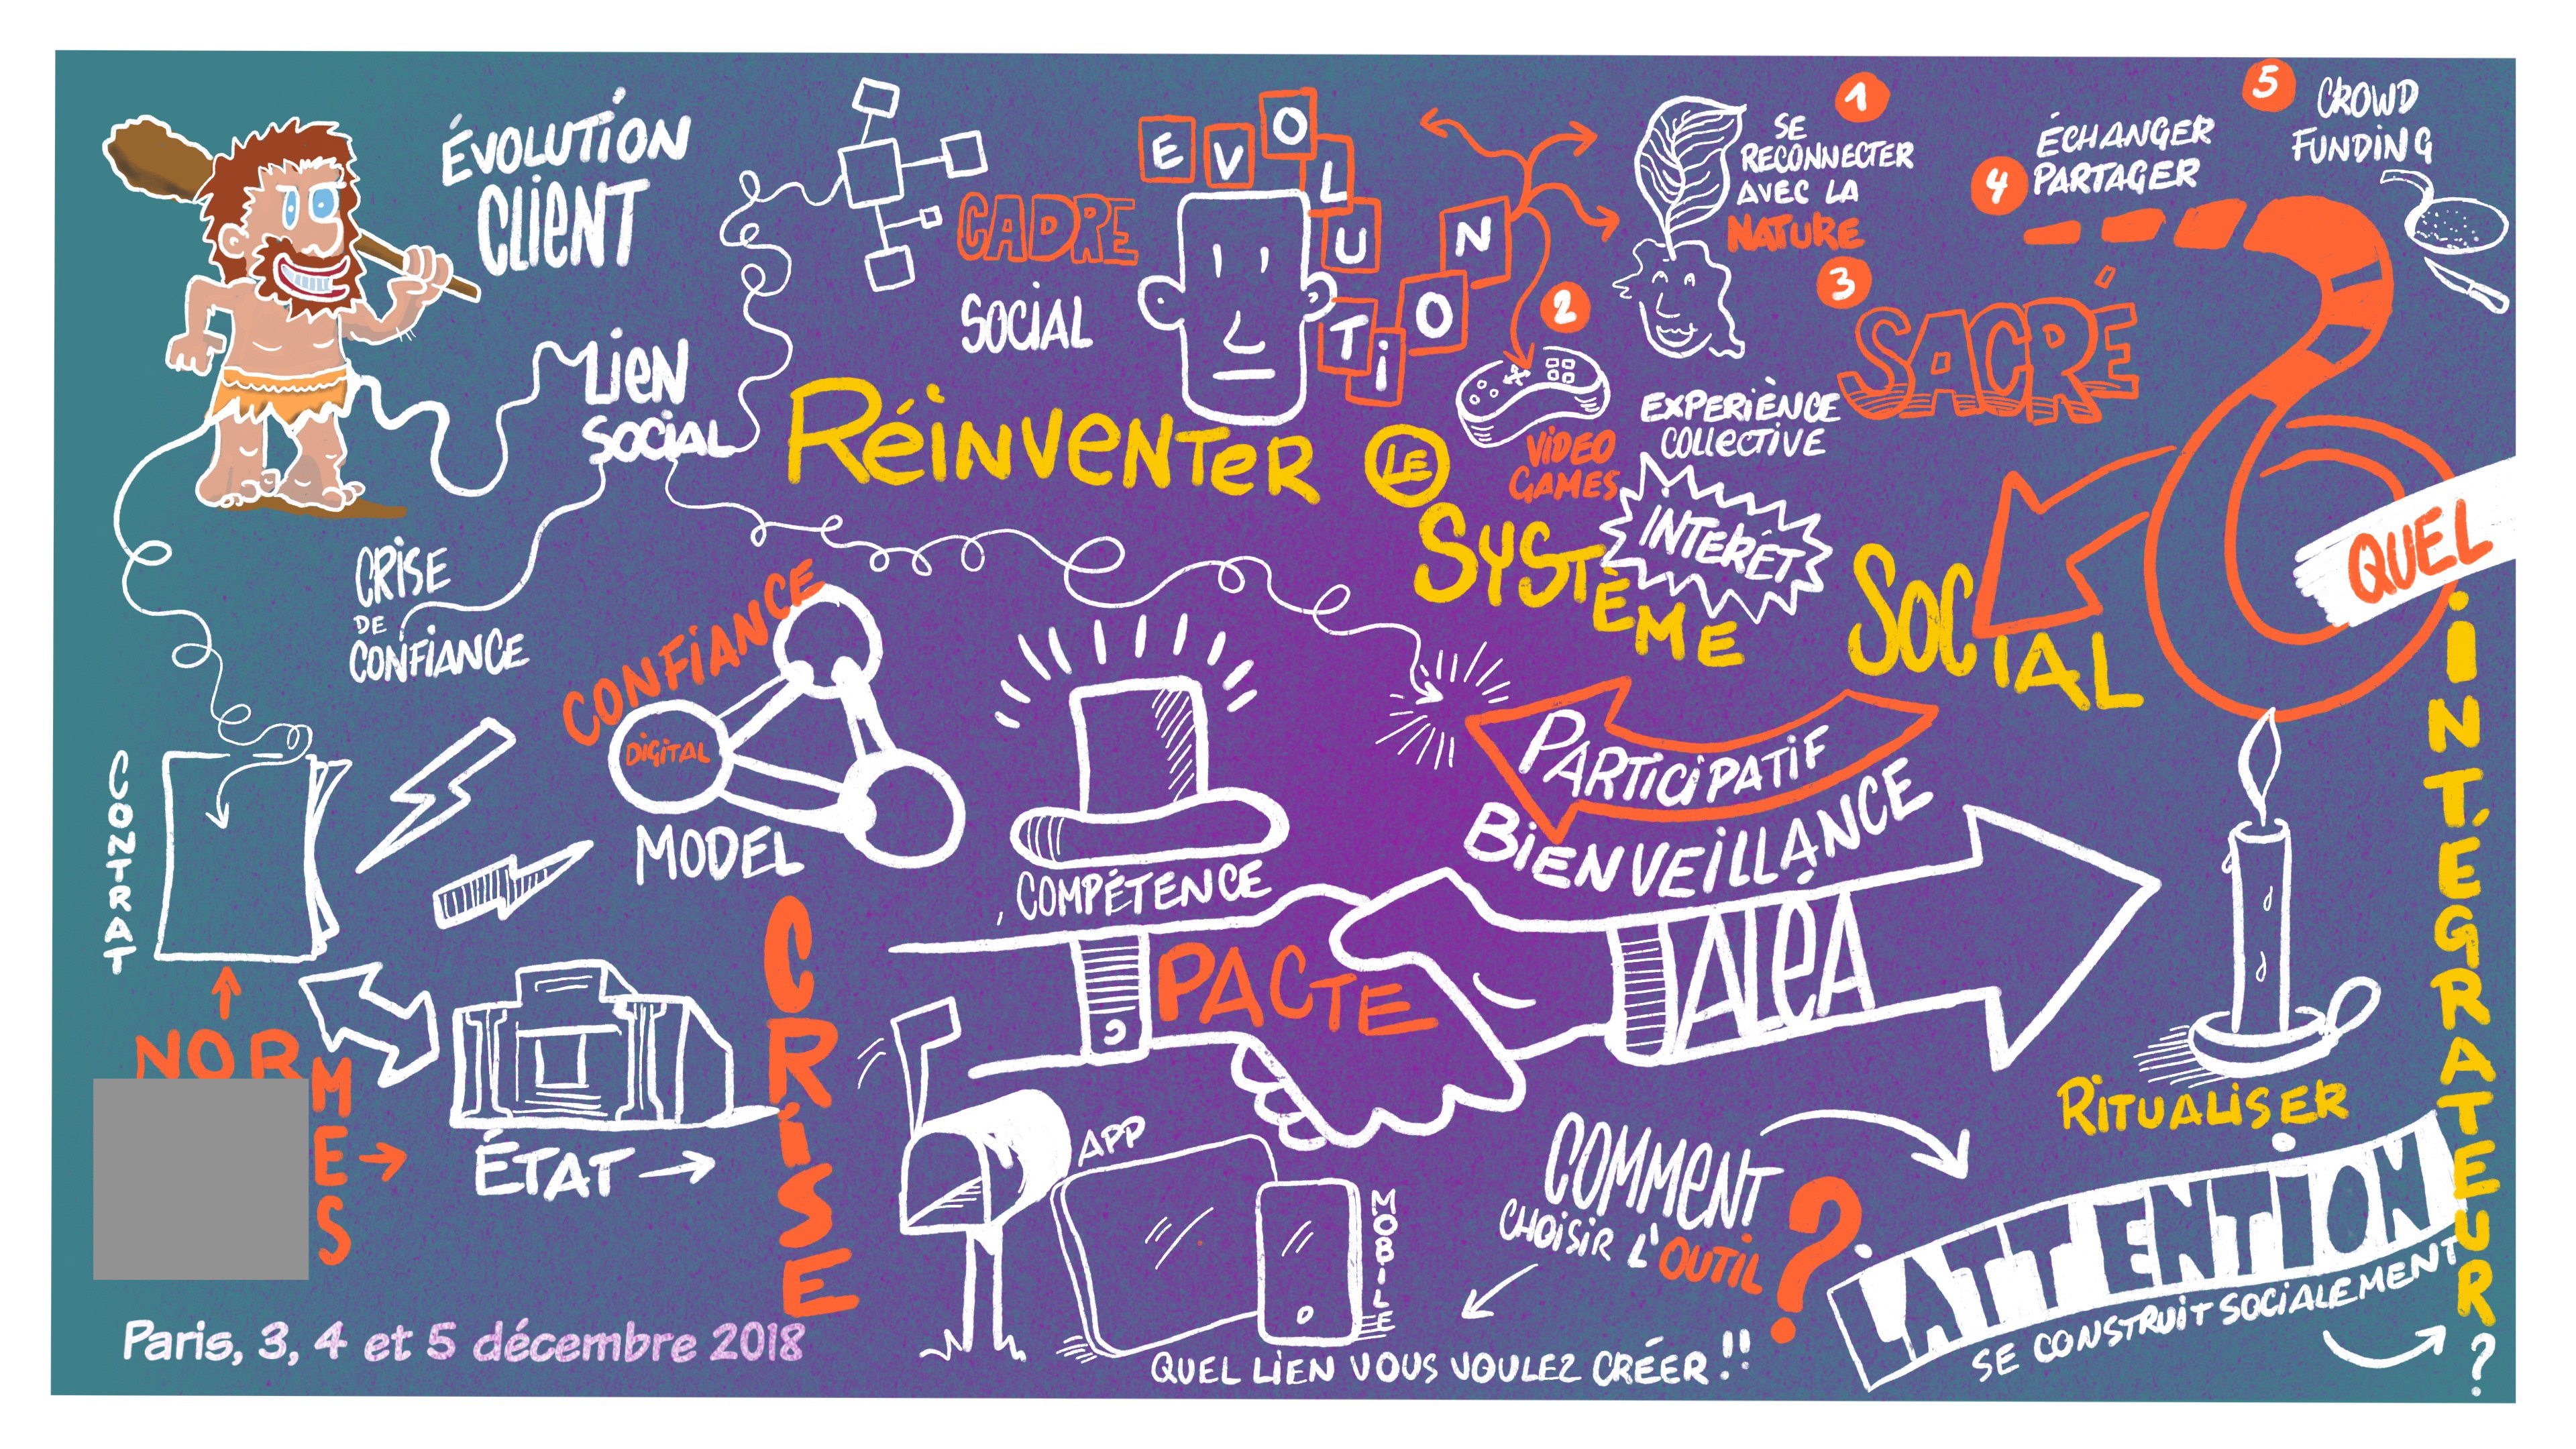 ÉVOLUTION
CLIENT
LIEN
SOCIAL
CADRE
SOCIAL
EVOLUTION
1
SE
RECONNECTER
AVEC LA
NATURE
2
VIDEO
GAMES
3
SACRÉ
EXPERIÈNCE
COLLECTIVE
INTERÊT
4
ÉCHANGER
PARTAGER
5
CROWD
FUNDING
RÉINVENTER
LE
SYSTÈME
SOCIAL
QUEL
INTÉGRATEUR
?
CRISE
DE
CONFIANCE
CONFIANCE
DIGITAL
MODEL
CONTRAT
NORMES
ÉTAT
CRISE
COMPÉTENCE
PARTICIPATIF
BIENVEILLANCE
PACTE
ALÉA
APP
MOBILE
COMMENT
CHOISIR L'OUTIL
?
QUEL LIEN VOUS VOULEZ CRÉER !!
RITUALISER
L'ATTENTION
SE CONSTRUIT SOCIALEMENT
Paris, 3, 4 et 5 décembre 2018